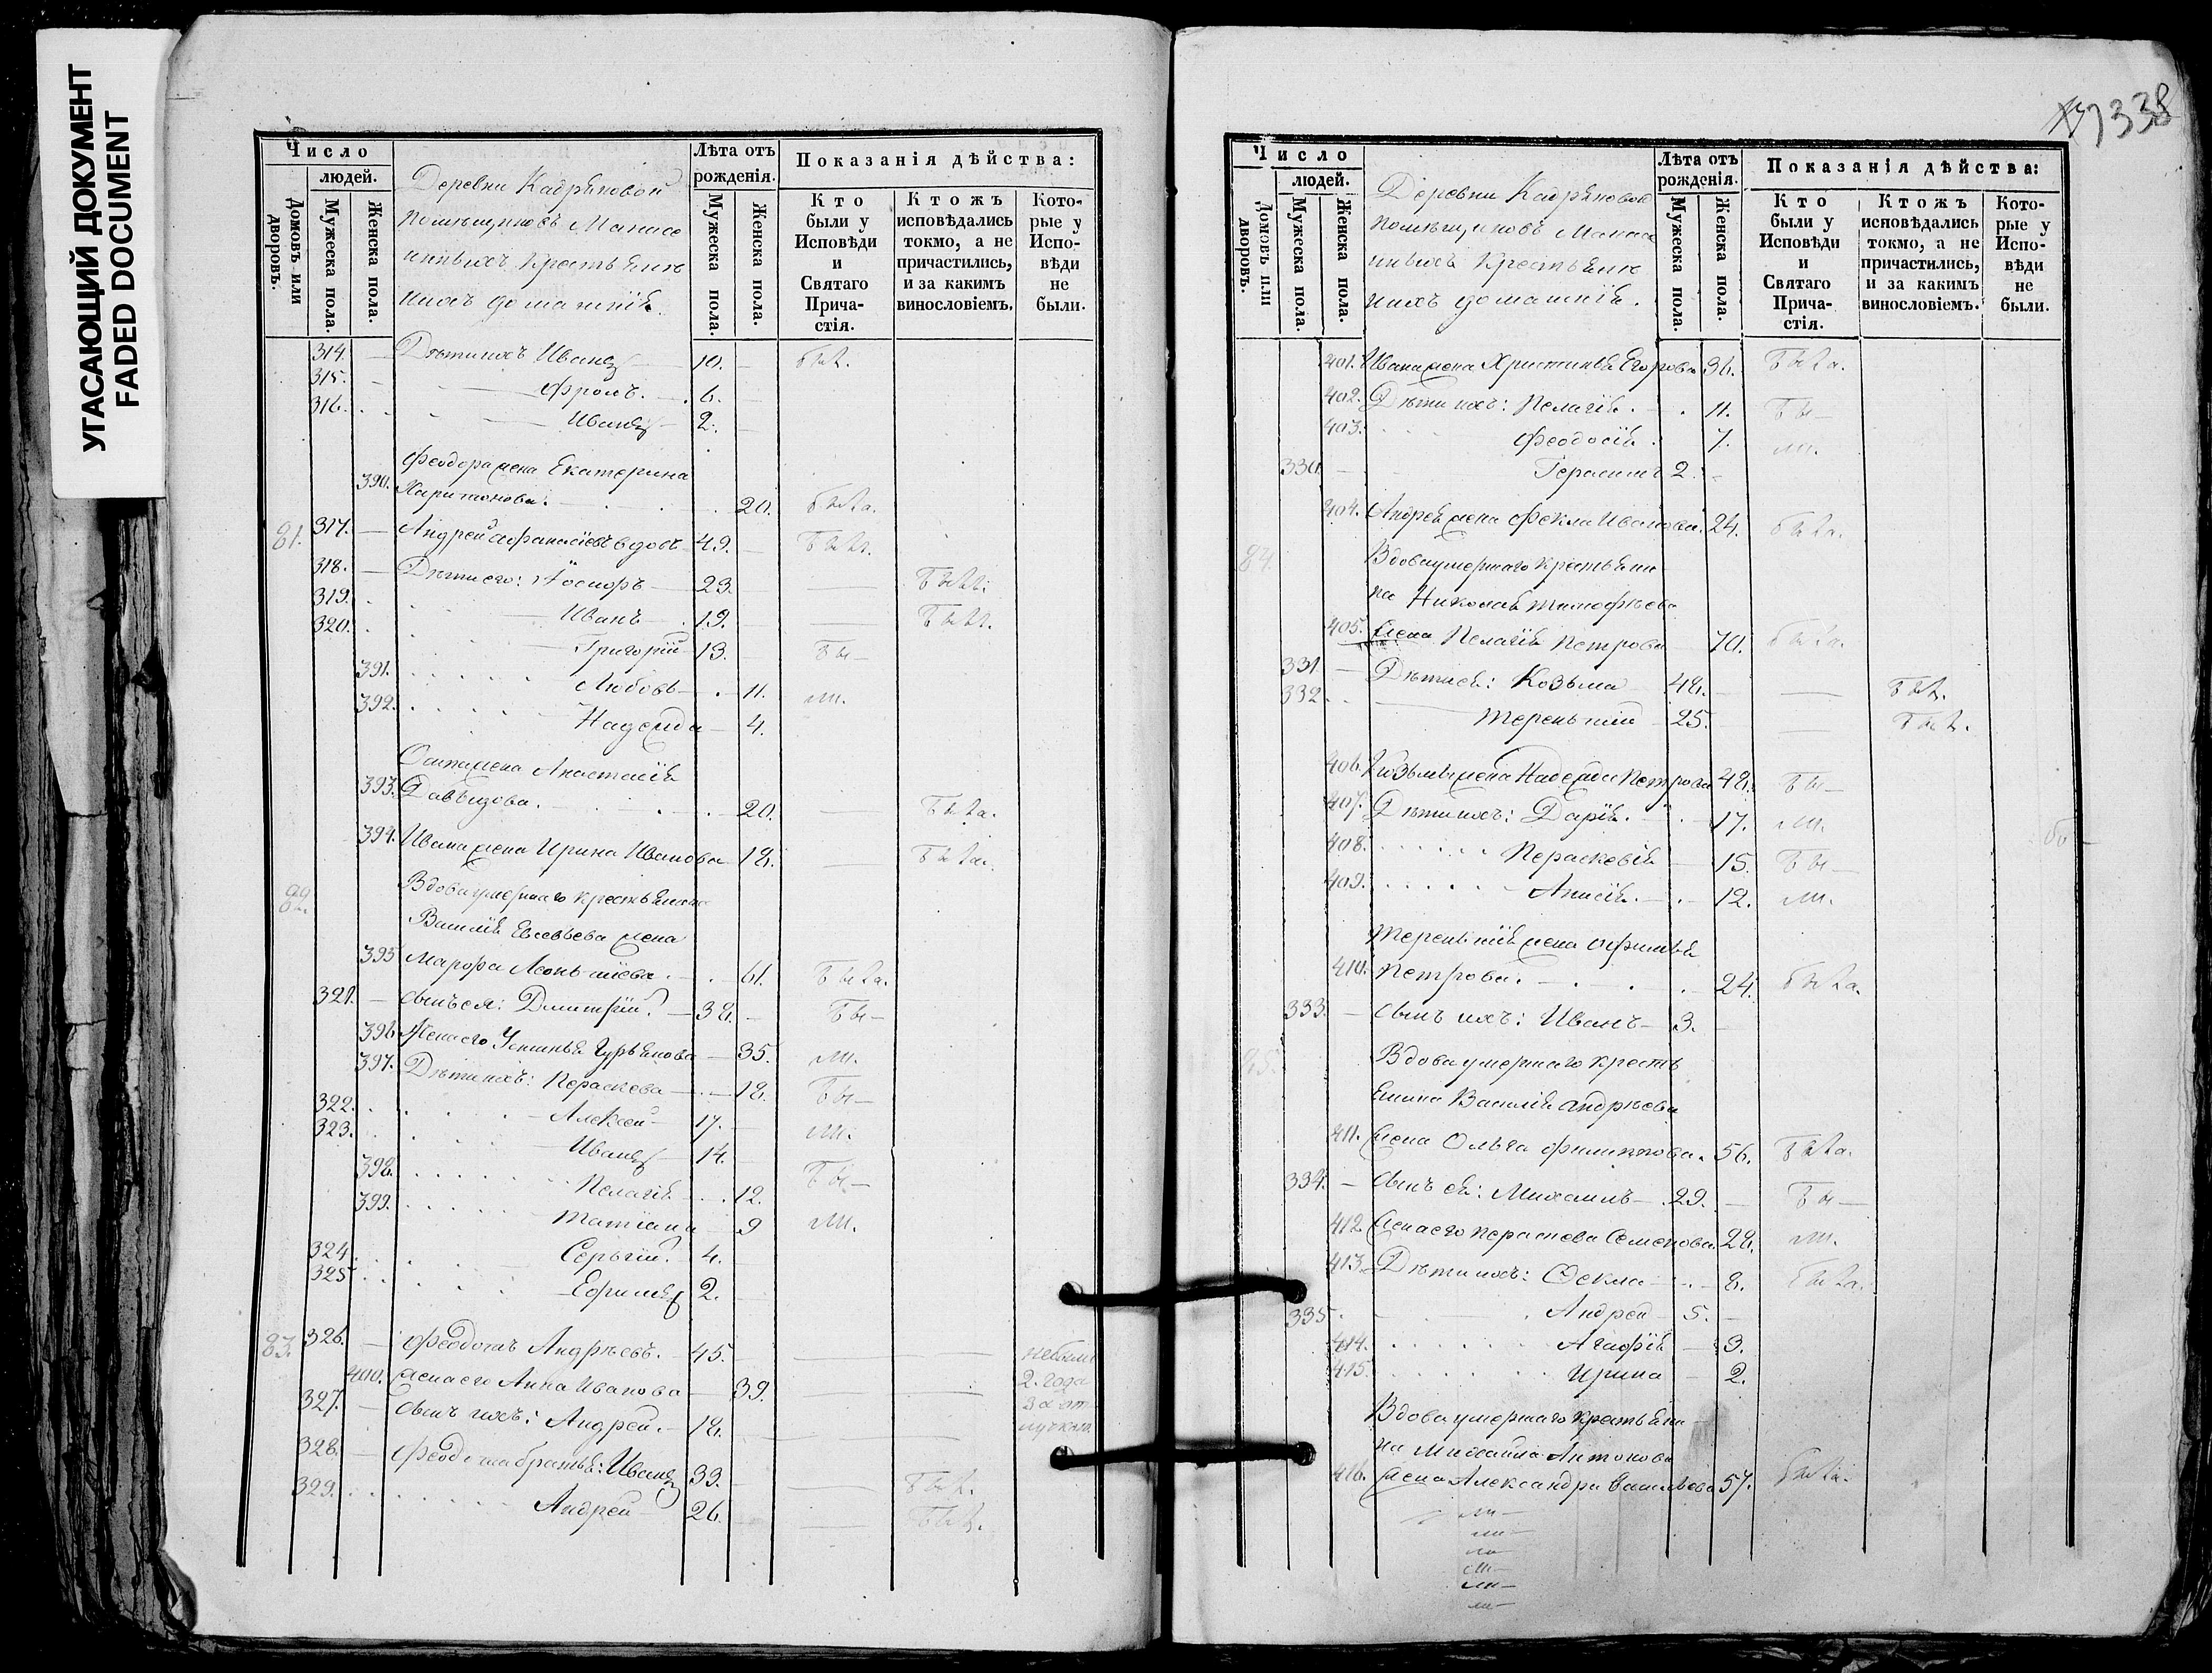 УГАСАЮЩИЙ ДОКУМЕНТ
FADED DOCUMENT
Число
людей.
Домовъ или дворовъ.
Мужеска пола.
Женска пола.
Деревни
помѣщиковъ
крестьяне
ихъ домашнія.
Лѣта отъ рожденія.
Мужеска пола.
Женска пола.
Показанія дѣйства:
Кто были у Исповѣди и Святаго Причастія.
Ктожъ исповѣдались токмо, а не причастились, и за какимъ винословіемъ.
Которые у Исповѣди не были.
314. — Дѣти ихъ Иванъ 10. — былъ.
315. — Фролъ. 6. —
316. Иванъ 2. —
Феодора жена Екатерина
390. Харитонова. 20. была.
81. 317. — Андрей Афанасіевъ вдовъ 49. — былъ.
318. — Дѣти его: Іосифъ 23. — былъ.
319. Иванъ 19. — былъ.
320. Григорій 13. — бы—
391. Любовь 11. ли.
392. Надежда 4.
Осипа жена Анастасія
393. Давыдова. 20. — была.
394. Ивана жена Ирина Иванова 18. — была.
82. Вдова умершаго крестьянина
Василія Евсевьева жена
395 Марфа Леонтіева. 61. была.
321. — сынъ ея: Дмитрій. 38. — бы—
396. Жена его Устинья Гурьянова 35. ли.
397. Дѣти ихъ: Параскева 18. бы—
322. Алексей 17. — ли.
323. Иванъ 14. —
398. Пелагія 12. бы—
399. Татіана 9 ли.
324. Сергій. 4.
325 Ефимъ 2. —
83. 326. — Феодотъ Андрѣевъ. 45. — — небыли
400. жена его Анна Иванова 39. — 2. года
327. — сынъ ихъ: Андрей. 18. — за от
328. — Феодота братья: Иванъ 33. — былъ.
329. Андрей 26. — былъ.
338
Число
людей.
Домовъ или дворовъ.
Мужеска пола.
Женска пола.
Деревни
помѣщиковъ
крестьяне
ихъ домашнія.
Лѣта отъ рожденія.
Мужеска пола.
Женска пола.
Показанія дѣйства:
Кто были у Исповѣди и Святаго Причастія.
Ктожъ исповѣдались токмо, а не причастились, и за какимъ винословіемъ.
Которые у Исповѣди не были.
401. Ивана жена Христинья Егорова 36. была.
402. Дѣти ихъ: Пелагія. 11. бы—
403. Феодосія. 7. ли.
330. — Герасимъ 2. —
404. Андрея жена Фекла Иванова. 24. была.
84. Вдова умершаго крестьяни
на Николая Тимофѣева
405. жена Пелагія Петрова 70. была.
331 — Дѣти ея: Козьма 48. — былъ.
332. Терентій 25. — былъ.
406. Козьмы жена Надежда Петрова 48. бы—
407. Дѣти ихъ: Дарія. 17. ли.
408. Параскевія 15. бы—
409. Анисія. 12. ли.
Терентія жена Афимья
410. Петрова. 24. была.
333. — сынъ ихъ: Иванъ 3. —
85. Вдова умершаго кресть
янина Василія Андрѣева
411. жена Ольга Филиппова. 56. была.
334. — сынъ ея: Михаилъ 29. — бы—
412. жена его Параскева Семенова. 28. ли.
413. Дѣти ихъ: Фекла 8. была.
335. Андрей 5. —
414. Агафія 3.
415. Ирина 2.
Вдова умершаго крестьяни
на Михаила Антонова
416. жена Александра Васильева 57. была.